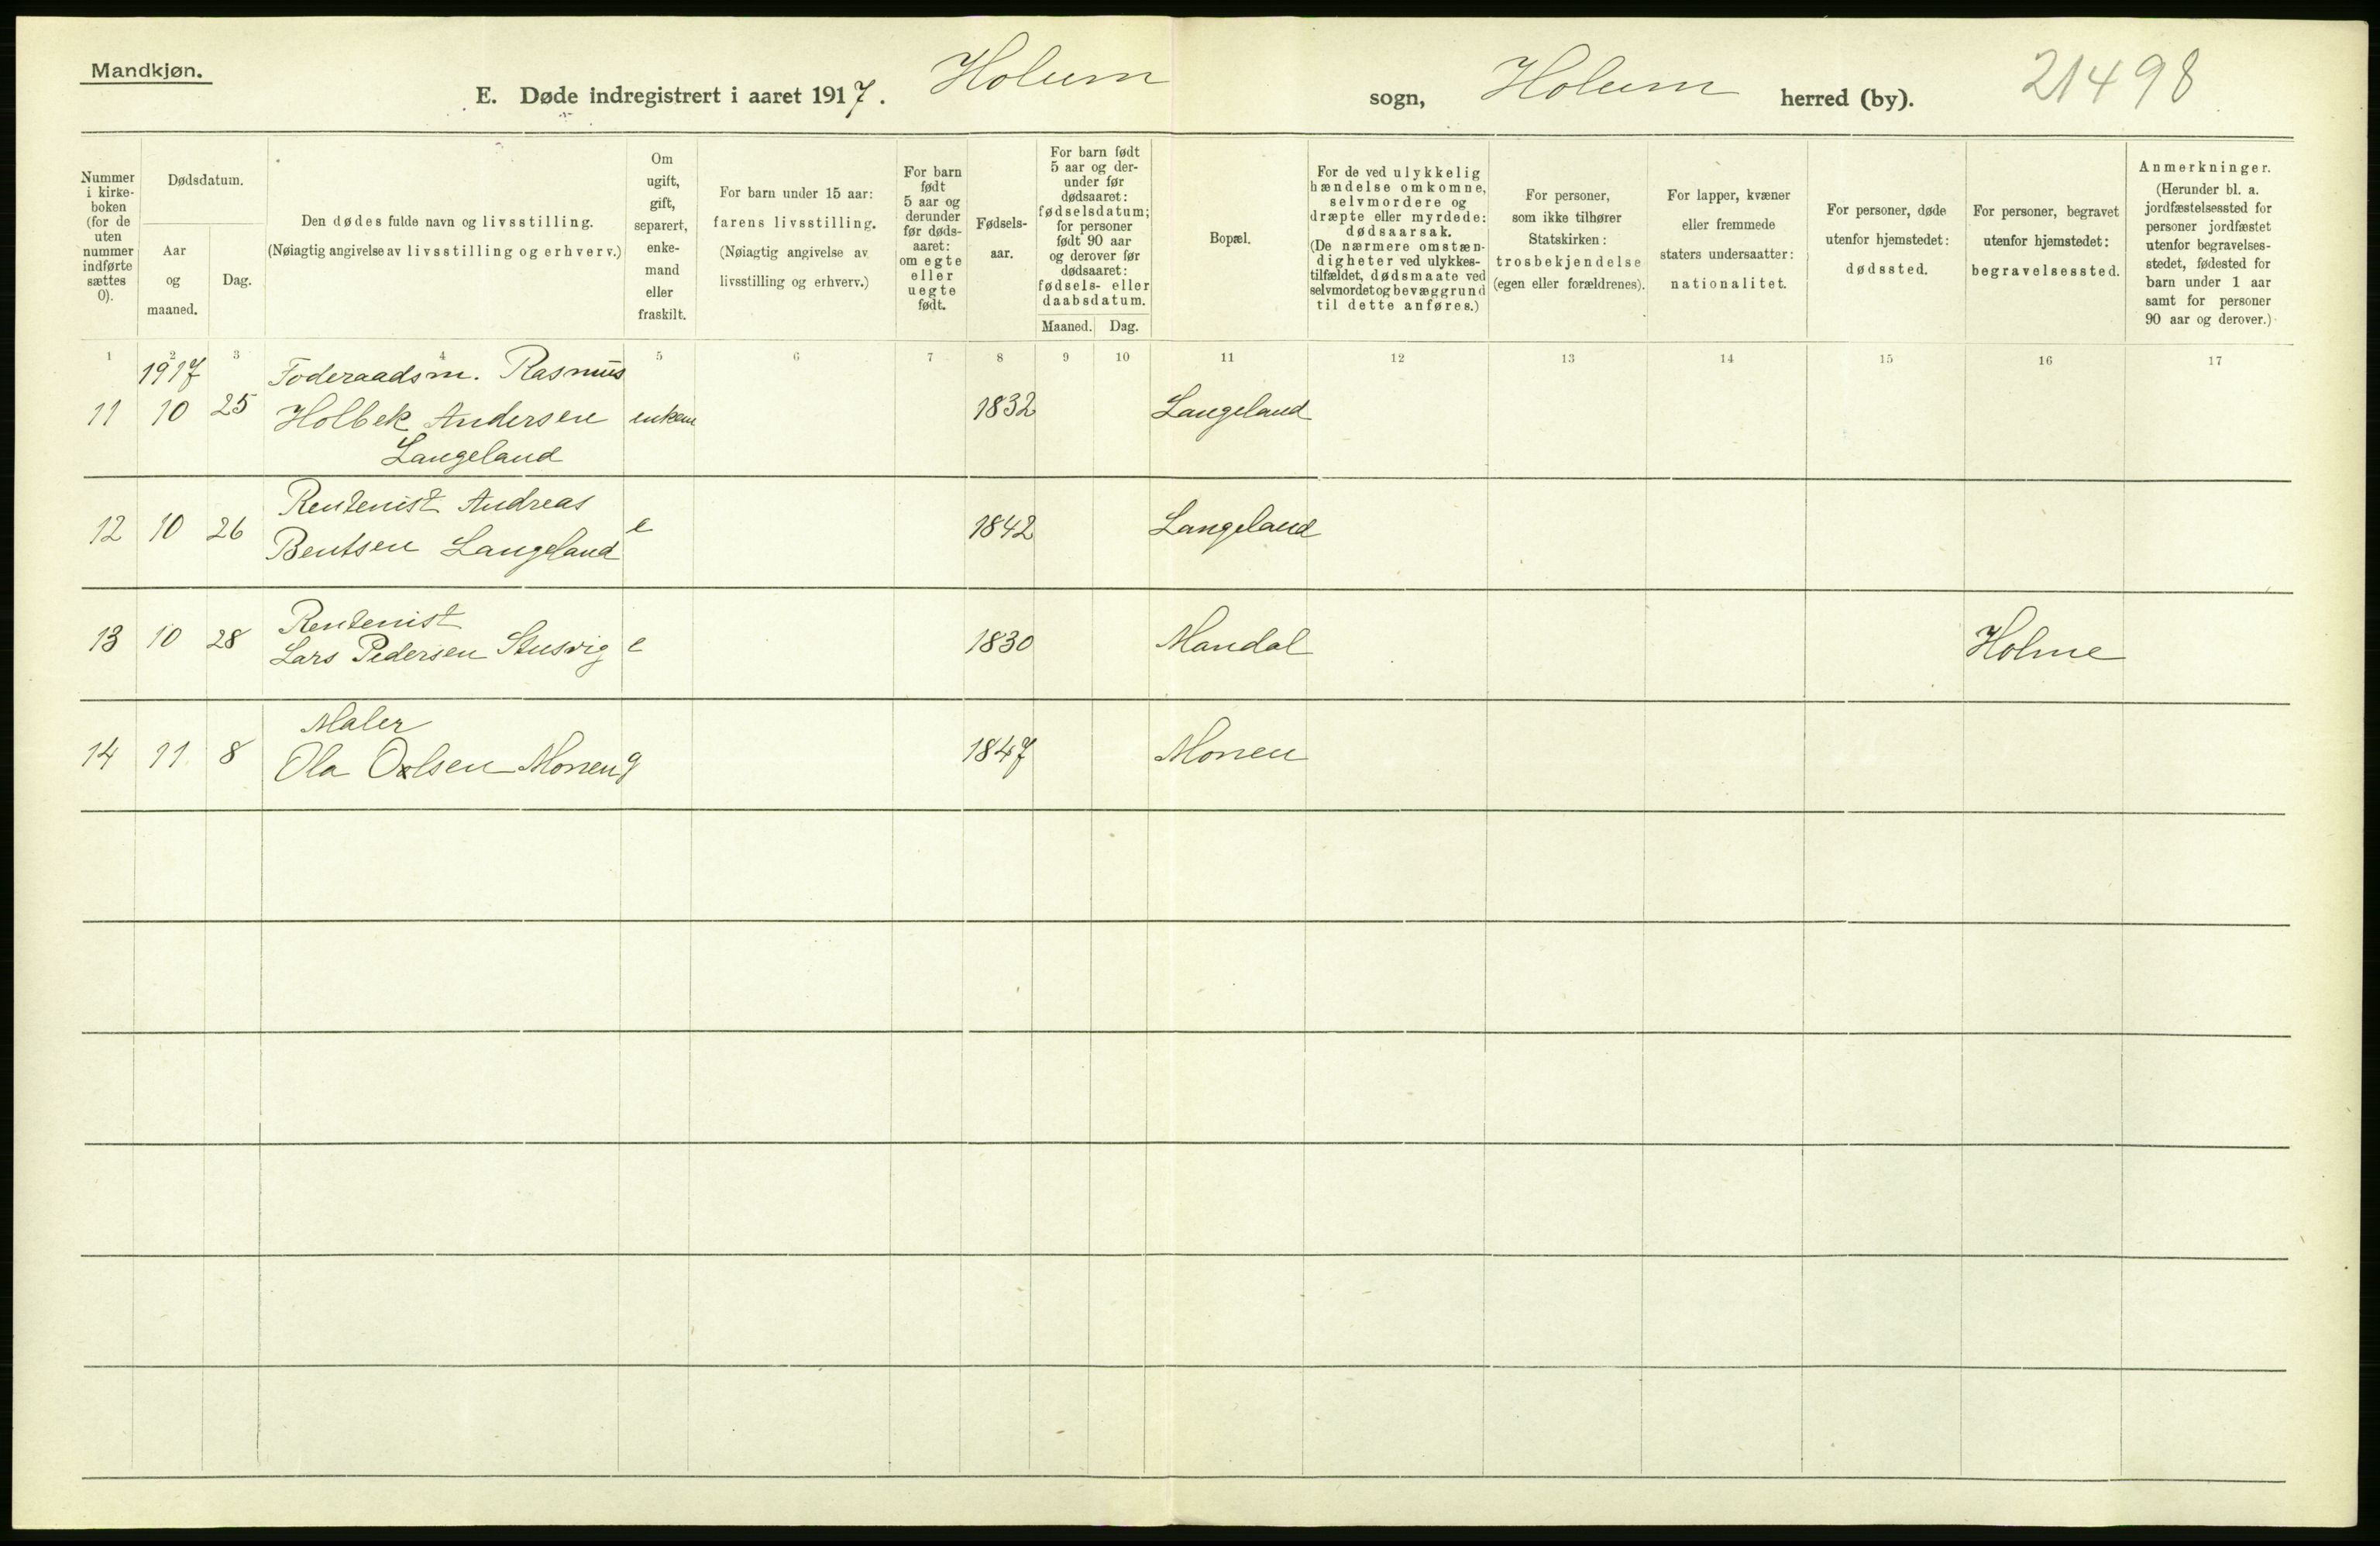 Mandkjøn.
E. Døde indregistrert i aaret 1917. Holum sogn, Holum herred (by). 21498
Nummer i kirke-boken (for de uten nummer indførte sættes 0).
Dødsdatum.
Aar og maaned.
Dag.
Den dødes fulde navn og livsstilling.
(Nøiagtig angivelse av livsstilling og erhverv.)
Om ugift, gift, separert, enke-mand eller fraskilt.
For barn under 15 aar:
farens livsstilling.
(Nøiagtig angivelse av livsstilling og erhverv.)
For barn født 5 aar og derunder før døds-aaret: om egte eller uegte født.
Fødsels-aar.
For barn født 5 aar og der-under før dødsaaret: fødselsdatum; for personer født 90 aar og derover før dødsaaret: fødsels- eller daabsdatum.
Maaned. Dag.
Bopæl.
For de ved ulykkelig hændelse omkomne, selvmordere og dræpte eller myrdede: dødsaarsak. (De nærmere omstæn-digheter ved ulykkes-tilfældet, dødsmaate ved selvmordet og bevæggrund til dette anføres.)
For personer, som ikke tilhører Statskirken: trosbekjendelse (egen eller forældrenes).
For lapper, kvæner eller fremmede staters undersaatter: nationalitet.
For personer, døde utenfor hjemstedet: dødssted.
For personer, begravet utenfor hjemstedet: begravelsessted.
Anmerkninger.
(Herunder bl. a. jordfæstelsessted for personer jordfæstet utenfor begravelses-stedet, fødested for barn under 1 aar samt for personer 90 aar og derover.)
1 2 3 4 5 6 7 8 9 10 11 12 13 14 15 16 17
1917 Foderaadsm. Rasmus
11 10 25 Holbek Andersen enkem 1832 Langeland
Langeland
Rentenist Andreas
12 10 26 Bentsen Langeland e 1842 Langeland
Rentenist
13 10 28 Lars Pedersen Stusvig e 1830 Mandal Holme
Maler
14 11 8 Ola Olsen Monen g 1847 Monen